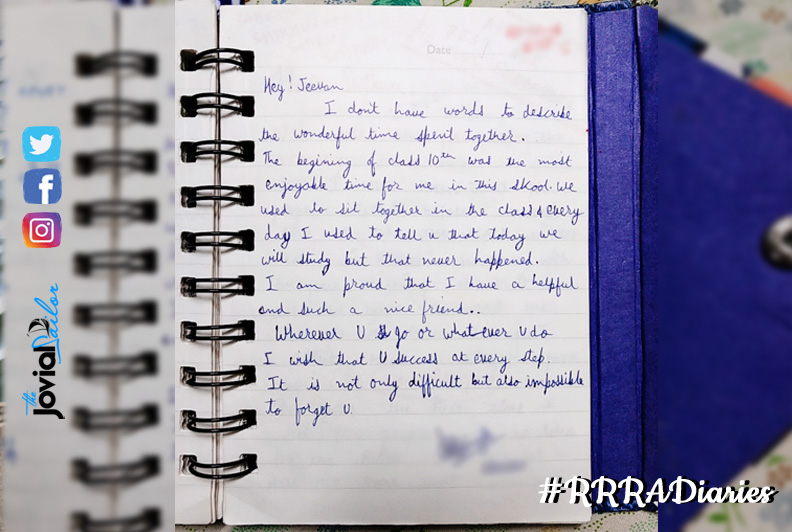 Date ...... /
Hey! Jeevan
I don't have words to describe
the wonderful time spent together.
The begining of class 10th was the most
enjoyable time for me in this skool. We
used to sit together in the class & every
day I used to tell u that today we
will study but that never happened.
I am proud that I have a helpful
and such a nice friend..
Wherever U go or what ever U do
I wish that U success at every step.
It is not only difficult but also impossible
to forget U.
the Jovial Sailor
#RRRADiaries